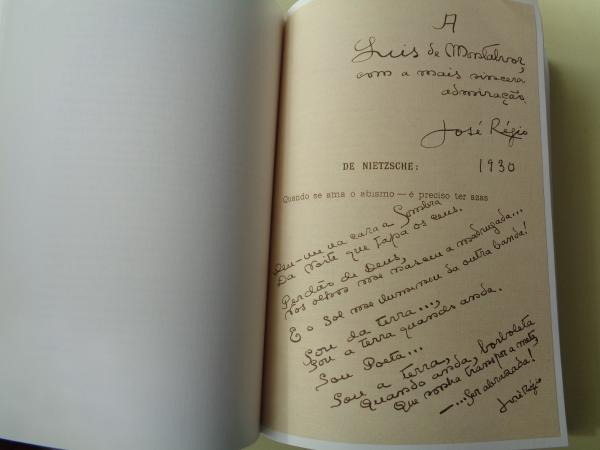 A
Luis de Montalvor,
com a mais sincera
admiração
José Régio
DE NIETZSCHE: 1930
Quando se ama o abismo — é preciso ter asas
Deu-me na cara a Sombra
Da Noite que tapa os céus.
Perdão de Deus,
Nos olhos me nasceu a madrugada...
E o Sol me iluminou da outra banda!
Sou da terra...,
Sou a terra quando anda.
Sou Poeta...
Sou a terra,
Quando anda, borboleta
Que sonha transpor a meta,
—... Ser abrazada!
José Régio